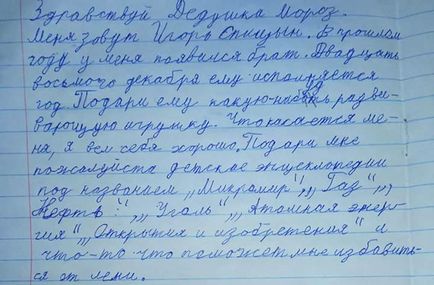 Здравствуй Дедушка Мороз.
Меня зовут Игорь Спицын. В прошлом
году у меня появился брат. Двадцать
восьмого декабря ему исполняется
год. Подари ему какую-нибудь разви-
вающую игрушку. Что касается ме-
ня, я вел себя хорошо, Подари мне
пожалуйста детские энциклопедии
под названием „Микромир", „Газ",
„Нефть", „Уголь", „Атомная энер-
гия", „Открытия и изобретения" и
что-то что поможет мне избавить-
ся от лени.